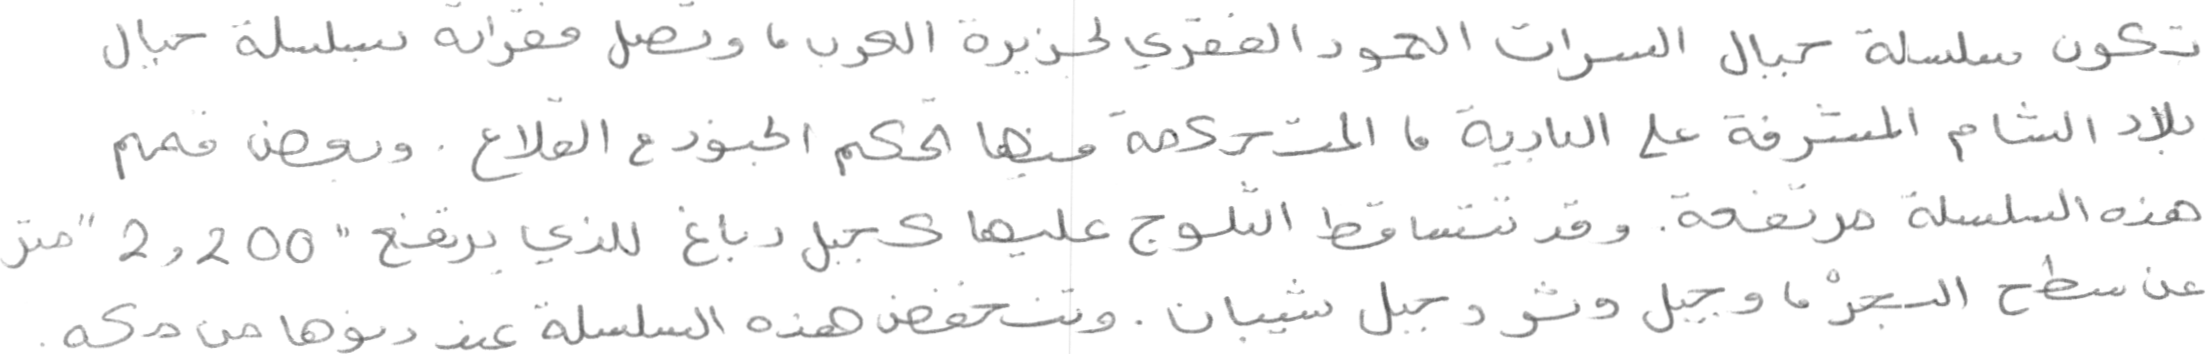 تكون سلسلة جبال السرات العمود الفقري لجزيرة العرب، وتصل فقراته بسلسلة جبال
بلاد الشام المشرفة على البادية، المتحركمة فيها تحكم الجنود ع القلاع. وبعض قمم
هذه السلسلة مرتفعة. وقد تتساقط الثلوج عليها كجبل دباغ للذي يرتفع "2,200" متر
عن سطح البحر، وجبل وتر وجبل شيبان. وتنخفض هذه السلسلة عند دنوها من مكه.